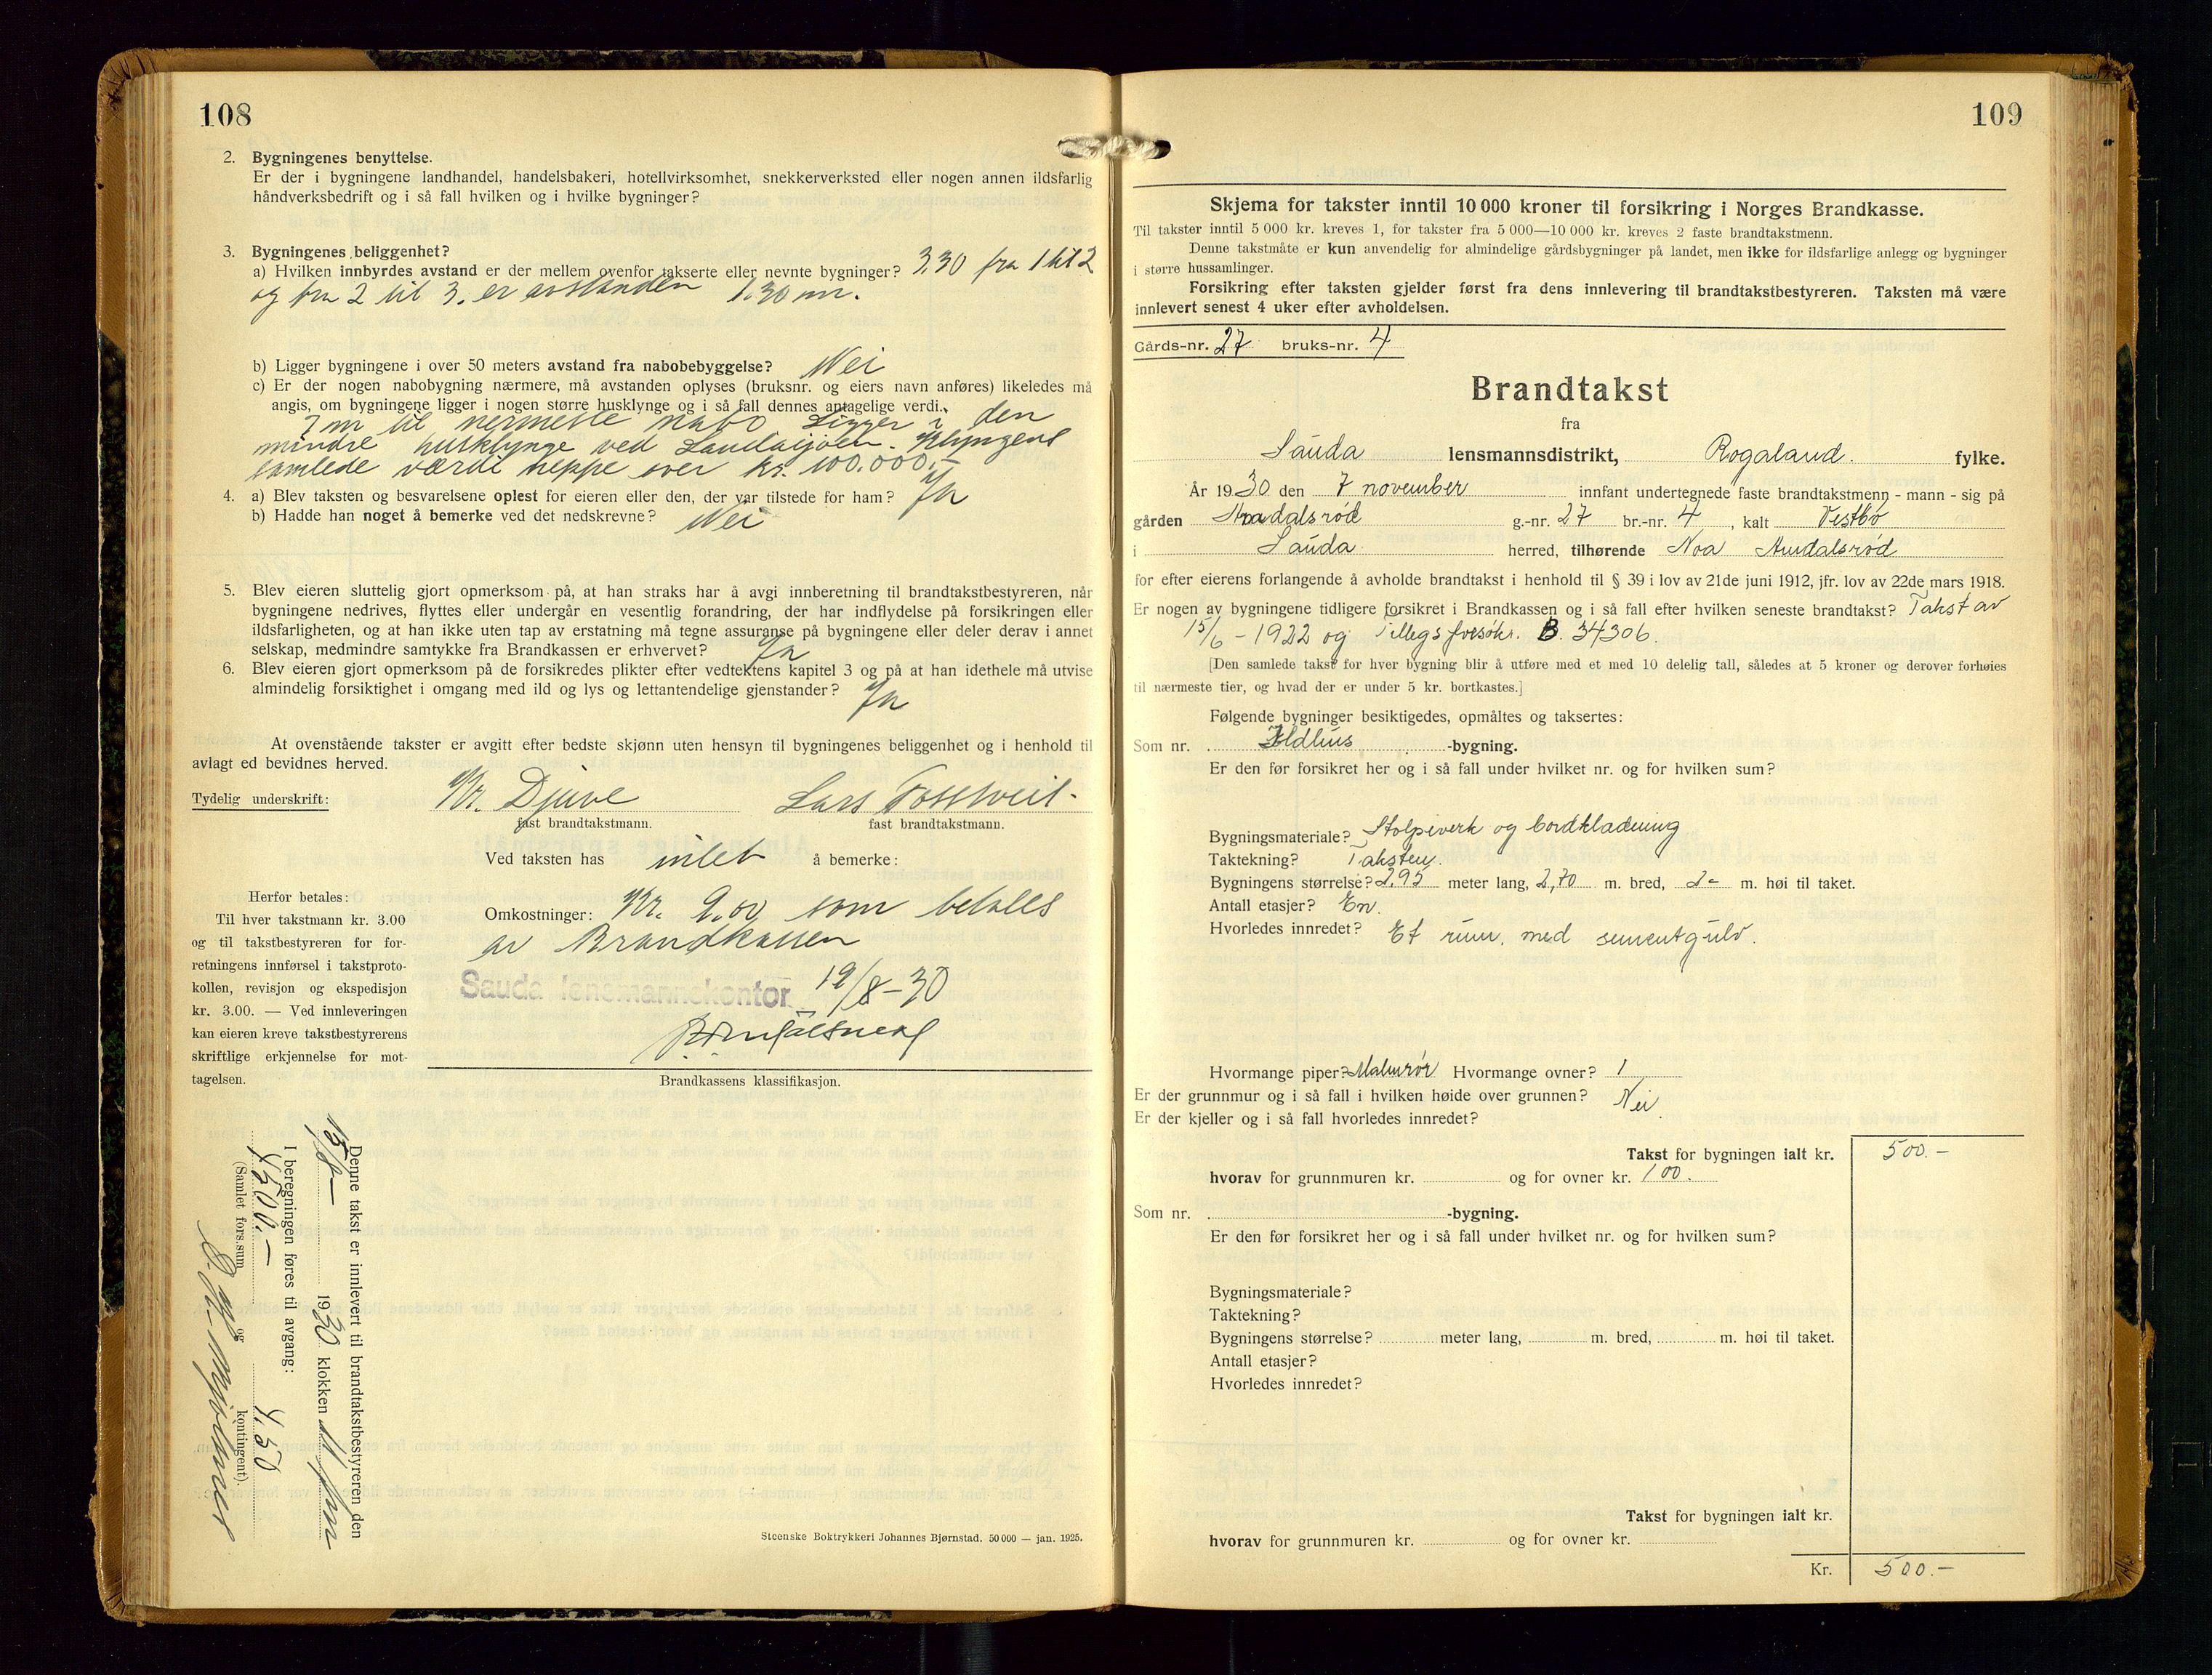 108
2. Bygningenes benyttelse.
Er der i bygningene landhandel, handelsbakeri, hotellvirksomhet, snekkerverksted eller nogen annen ildsfarlig
håndverksbedrift og i så fall hvilken og i hvilke bygninger?
3. Bygningenes beliggenhet?
a) Hvilken innbyrdes avstand er der mellem ovenfor takserte eller nevnte bygninger? 3,30 fra 1 til 2
og fra 2 til 3. er avstanden 1,30 m.
b) Ligger bygningene i over 50 meters avstand fra nabobebyggelse? Nei
c) Er der nogen nabobygning nærmere, må avstanden oplyses (bruksnr. og eiers navn anføres) likeledes må
angis, om bygningene ligger i nogen større husklynge og i så fall dennes antagelige verdi.
7 m til nermeste nabo Ligger i den
mindre husklynge ved Saudasjøen. Klyngens
samlede værdi neppe over kr. 100.000.-
4. a) Blev taksten og besvarelsene oplest for eieren eller den, der var tilstede for ham? Ja
b) Hadde han noget å bemerke ved det nedskrevne? Nei
5. Blev eieren sluttelig gjort opmerksom på, at han straks har å avgi innberetning til brandtakstbestyreren, når
bygningene nedrives, flyttes eller undergår en vesentlig forandring, der har indflydelse på forsikringen eller
ildsfarligheten, og at han ikke uten tap av erstatning må tegne assuranse på bygningene eller deler derav i annet
selskap, medmindre samtykke fra Brandkassen er erhvervet? Ja
6. Blev eieren gjort opmerksom på de forsikredes plikter efter vedtektens kapitel 3 og på at han idethele må utvise
almindelig forsiktighet i omgang med ild og lys og lettantendelige gjenstander? Ja
At ovenstående takster er avgitt efter bedste skjønn uten hensyn til bygningenes beliggenhet og i henhold til
avlagt ed bevidnes herved.
Tydelig underskrift: Kr. Djuve Lars Tosstveit.
fast brandtakstmann. fast brandtakstmann.
Ved taksten has intet å bemerke:
Omkostninger: Kr. 9.00 som betales
av Brandkassen
Sauda lensmannskontor 19/8-30
Herfor betales:
Til hver takstmann kr. 3.00
og til takstbestyreren for for-
retningens innførsel i takstproto-
kollen, revisjon og ekspedisjon
kr. 3.00. — Ved innleveringen
kan eieren kreve takstbestyrerens
skriftlige erkjennelse for mot-
tagelsen.
Brandkassens klassifikasjon.
Denne takst er innlevert til brandtakstbestyreren den
15/8- 1930 klokken 11 fm
I beregningen føres til avgang:
4500.- 4,50
(Samlet fors.sum og kontingent).
Steenske Boktrykkeri Johannes Bjørnstad. 50 000 — jan. 1925.
109
Skjema for takster inntil 10 000 kroner til forsikring i Norges Brandkasse.
Til takster inntil 5 000 kr. kreves 1, for takster fra 5 000—10 000 kr. kreves 2 faste brandtakstmenn.
Denne takstmåte er kun anvendelig for almindelige gårdsbygninger på landet, men ikke for ildsfarlige anlegg og bygninger
i større hussamlinger.
Forsikring efter taksten gjelder først fra dens innlevering til brandtakstbestyreren. Taksten må være
innlevert senest 4 uker efter avholdelsen.
Gårds-nr. 27 bruks-nr. 4
Brandtakst
fra
Sauda lensmannsdistrikt, Rogaland. fylke.
År 1930 den 7 november innfant undertegnede faste brandtakstmenn - mann - sig på
gården Amdalsrød g.-nr. 27 br.-nr. 4, kalt Vestbø
i Sauda herred, tilhørende Noa Amdalsrød
for efter eierens forlangende å avholde brandtakst i henhold til § 39 i lov av 21de juni 1912, jfr. lov av 22de mars 1918.
Er nogen av bygningene tidligere forsikret i Brandkassen og i så fall efter hvilken seneste brandtakst? Takst av
15/6 - 1922 og Tillegsforsøkr. B. 34306.
[Den samlede takst for hver bygning blir å utføre med et med 10 delelig tall, således at 5 kroner og derover forhøies
til nærmeste tier, og hvad der er under 5 kr. bortkastes.]
Følgende bygninger besiktigedes, opmåltes og taksertes:
Som nr. Ildhus -bygning.
Er den før forsikret her og i så fall under hvilket nr. og for hvilken sum?
Bygningsmateriale? Stolpeverk og bordkladning
Taktekning? Taksten.
Bygningens størrelse? 2,95 meter lang, 2,70 m. bred, 2- m. høi til taket.
Antall etasjer? En.
Hvorledes innredet? Et rum, med sementgulv.
Hvormange piper? Malmrør Hvormange ovner? 1
Er der grunnmur og i så fall i hvilken høide over grunnen? Nei
Er der kjeller og i så fall hvorledes innredet?
Takst for bygningen ialt kr. 500.-
hvorav for grunnmuren kr. og for ovner kr. 100.
Som nr. -bygning.
Er den før forsikret her og i så fall under hvilket nr. og for hvilken sum?
Bygningsmateriale?
Taktekning?
Bygningens størrelse? meter lang, m. bred, m. høi til taket.
Antall etasjer?
Hvorledes innredet?
Takst for bygningen ialt kr.
hvorav for grunnmuren kr. og for ovner kr.
Kr. 500.-